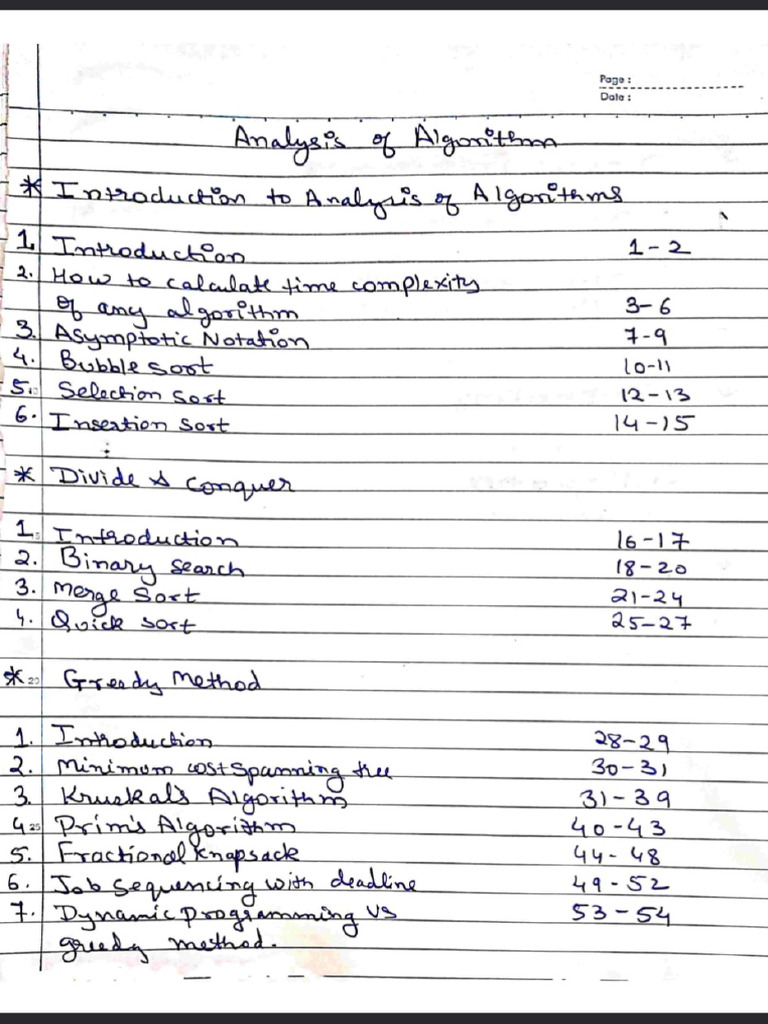 Page :
Date :
Analysis of Algorithm
* Introduction to Analysis of Algorithms
1. Introduction 1-2
2. How to calculate time complexity
of any algorithm 3-6
3. Asymptotic Notation 7-9
4. Bubble sort 10-11
5. Selection sort 12-13
6. Insertion sort 14-15
* Divide & Conquer
1. Introduction 16-17
2. Binary search 18-20
3. Merge Sort 21-24
4. Quick sort 25-27
* Greedy Method
1. Introduction 28-29
2. Minimum cost spanning tree 30-31
3. Kruskal's Algorithm 31-39
4. Prim's Algorithm 40-43
5. Fractional knapsack 44-48
6. Job sequencing with deadline 49-52
7. Dynamic programming vs 53-54
greedy method.